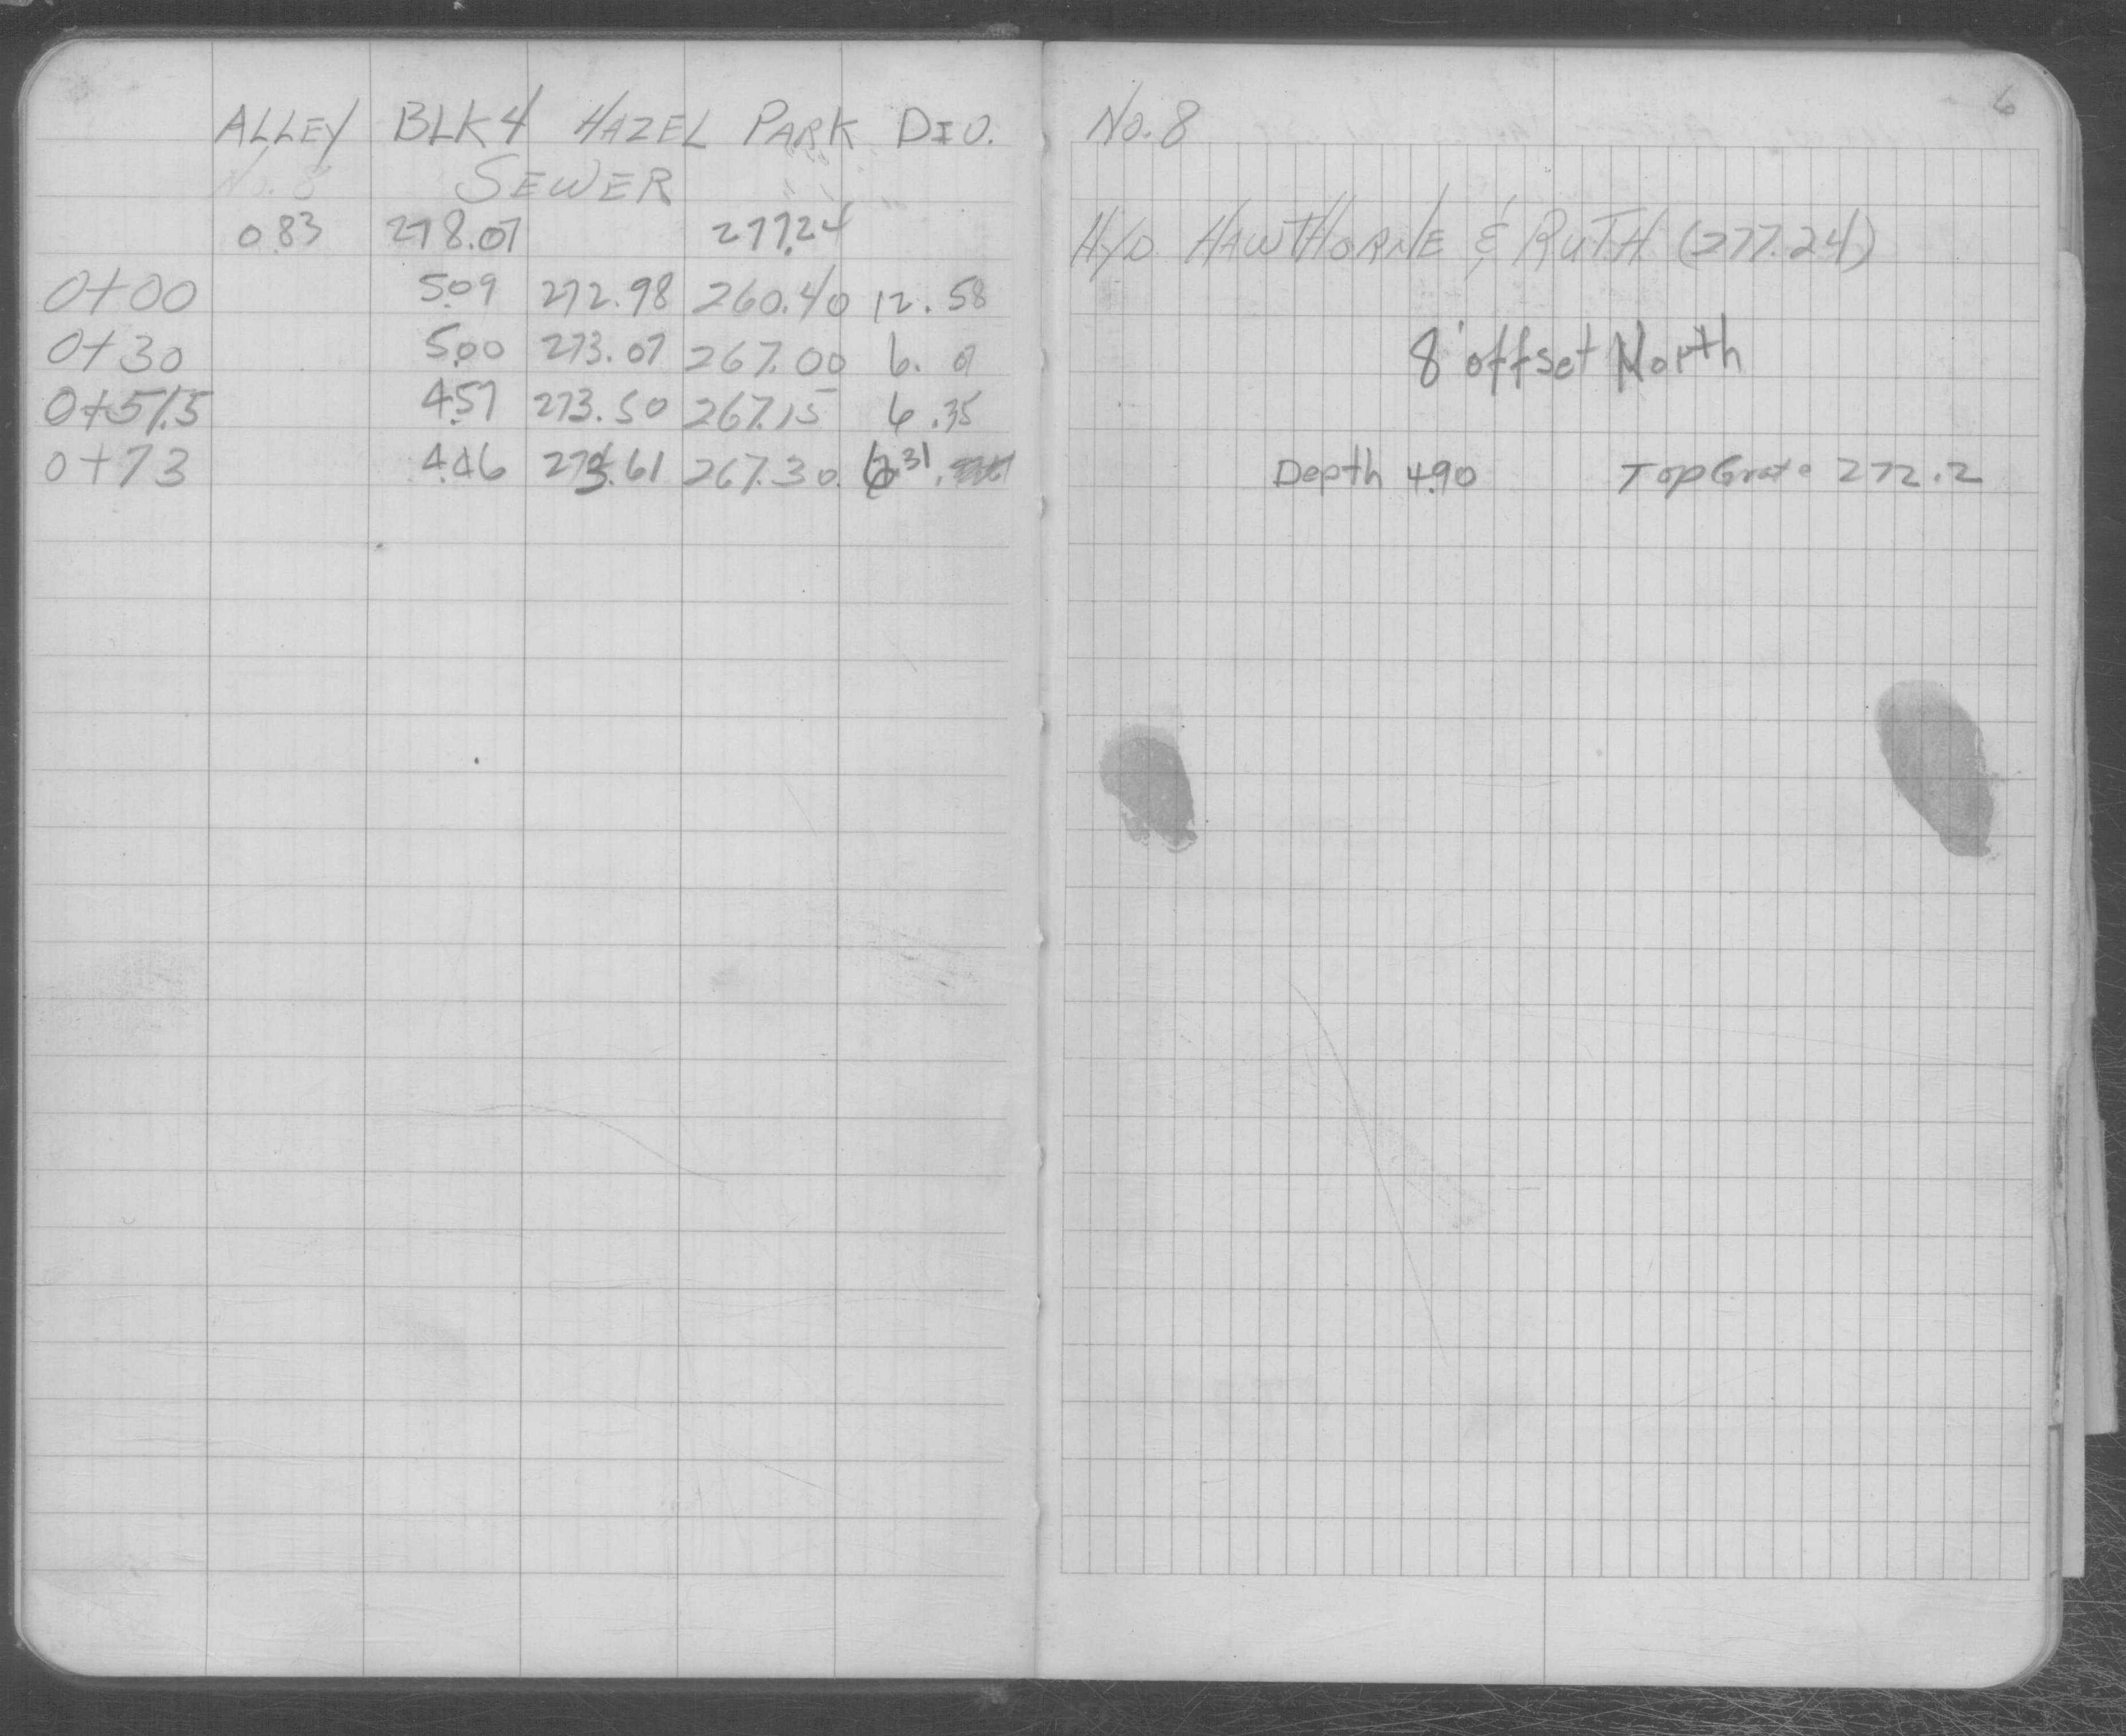 ALLEY BLK 4 HAZEL PARK DIV.
No. 8 SEWER
0.83 278.07 277.24
0+00 5.09 272.98 260.40 12.58
0+30 5.00 273.07 267.00 6.07
0+51.5 4.57 273.50 267.15 6.35
0+73 4.46 273.61 267.30 6.31
6
No. 8
HYD. HAWTHORNE & RUTH (277.24)
8' offset North
Depth 4.90 Top Grate 272.2